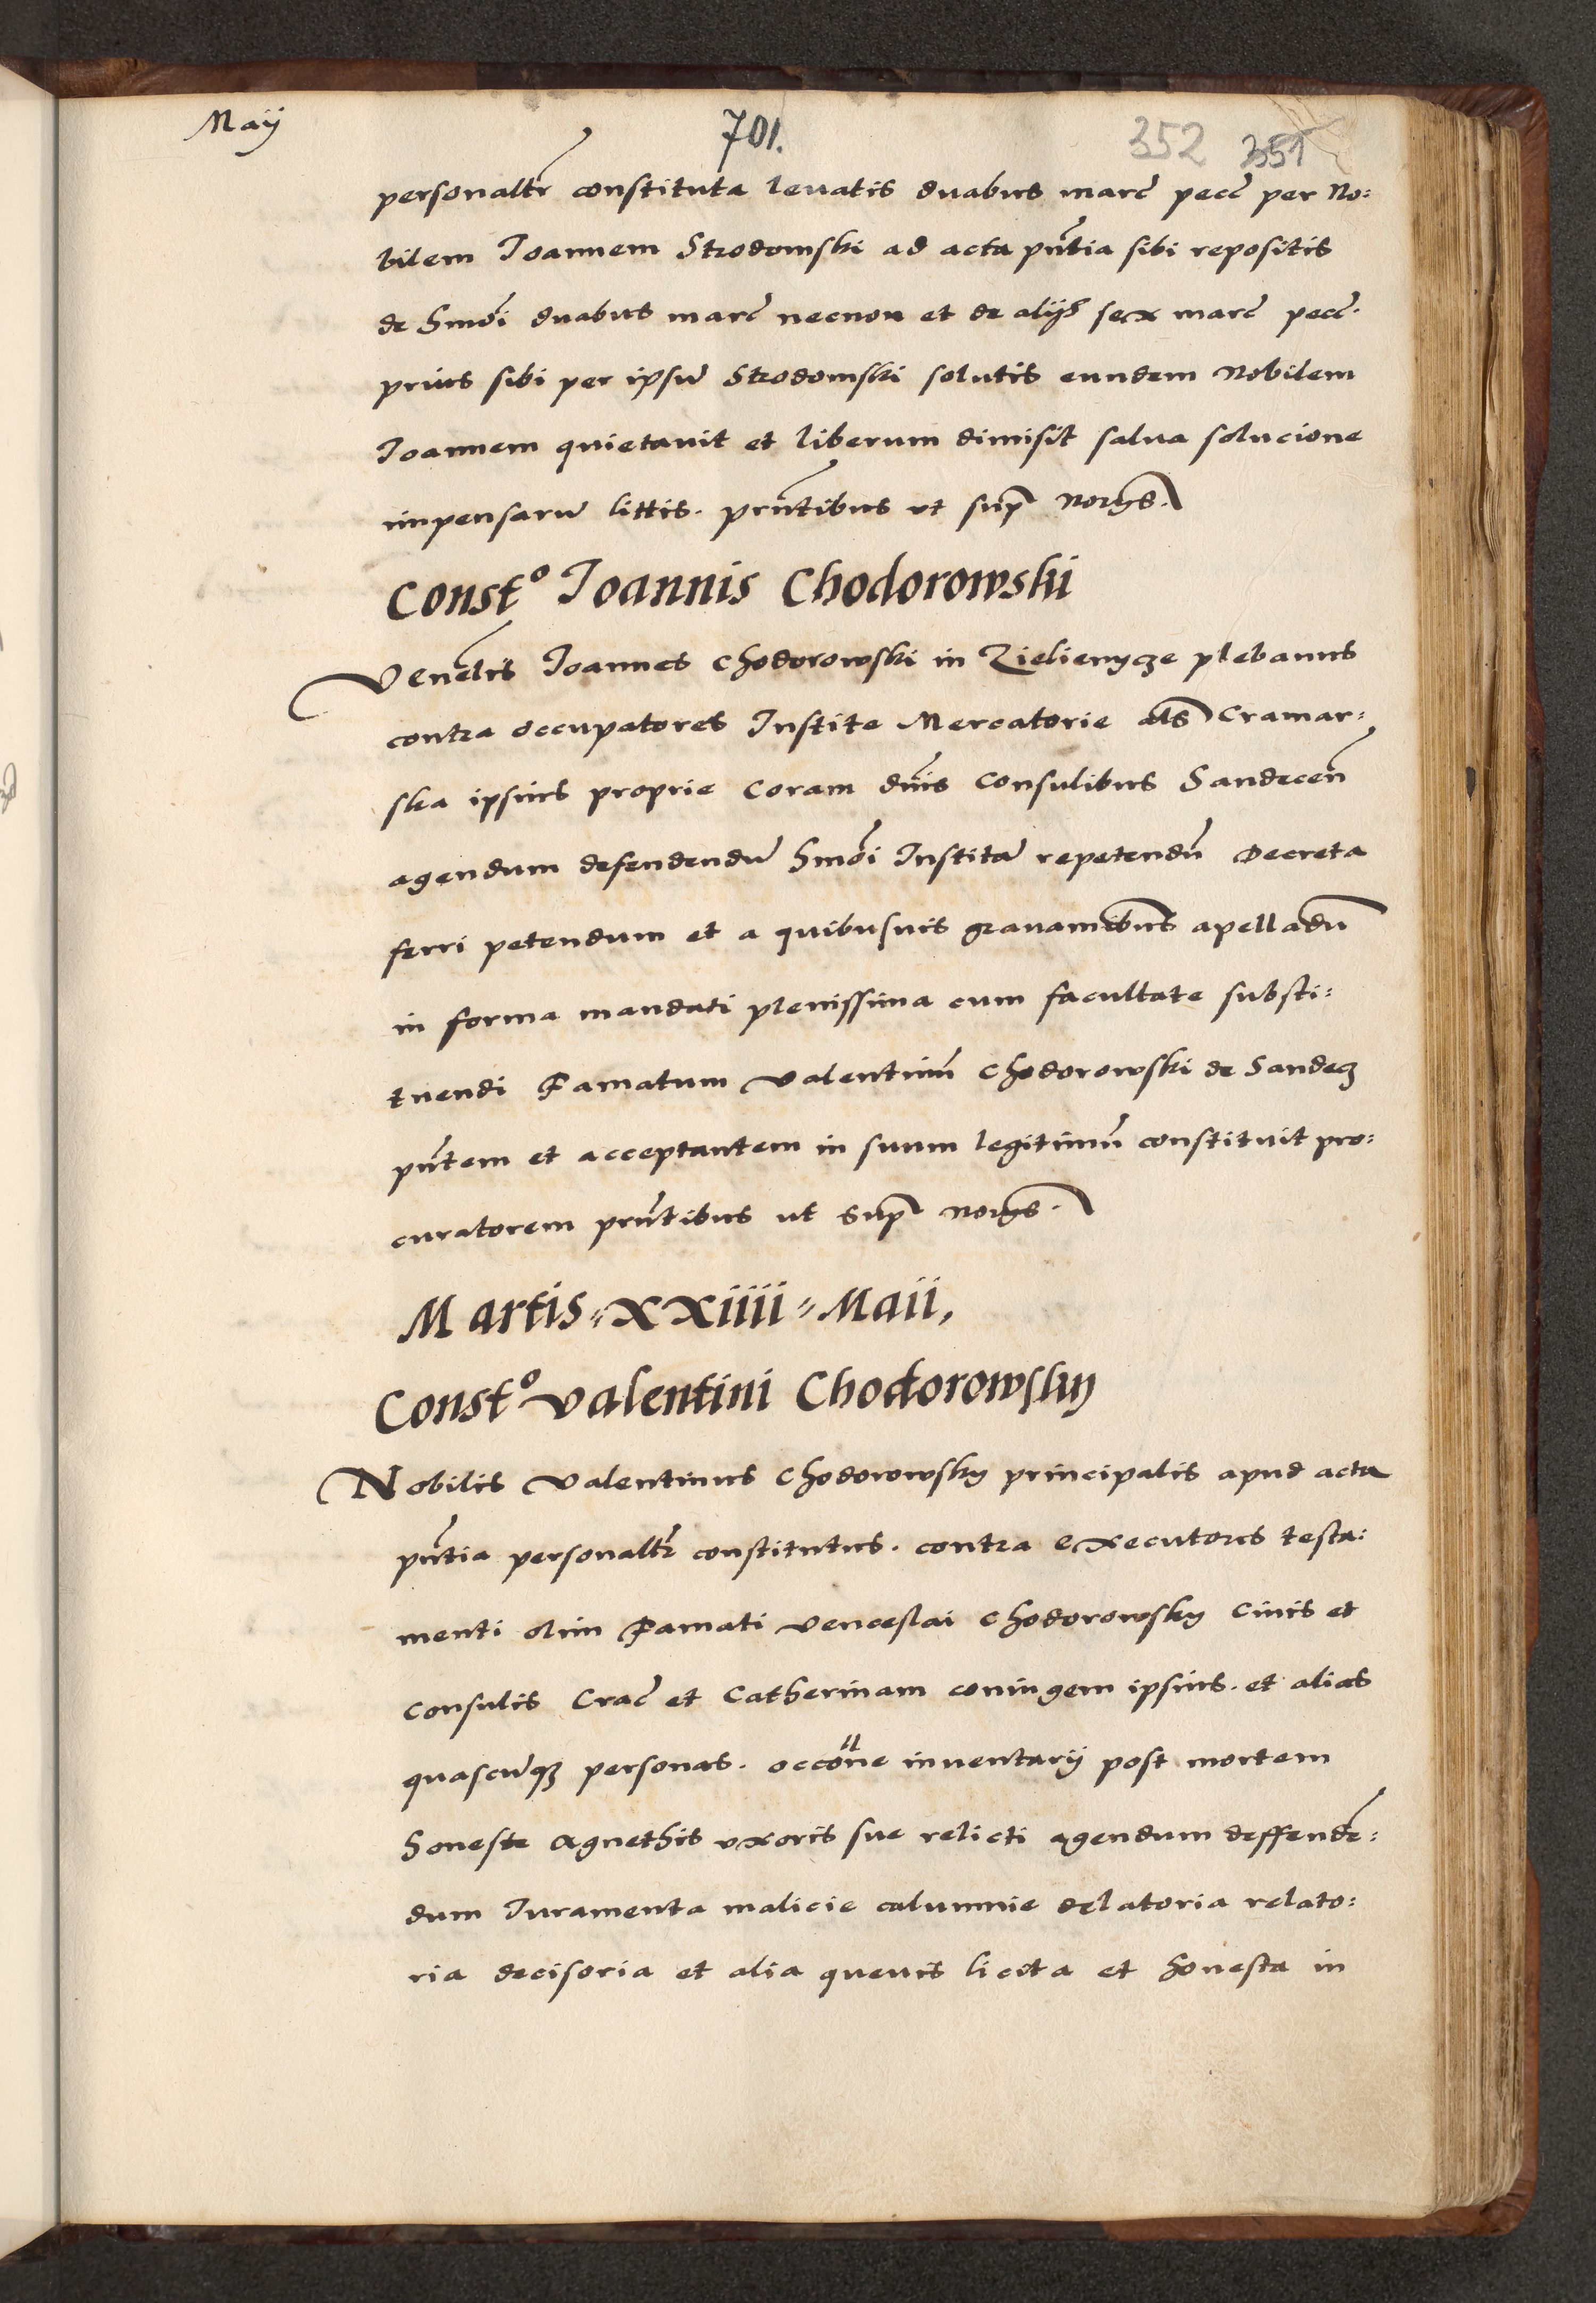 Maij
701.
352 351
personaltr constituta levatis duabus marc pecc per No:
bilem Joannem Strodomski ad acta pntia sibi repositis
de hmoi duabus marc necnon et de alijs sex marc pecc.
prius sibi per ipsu Strodomski solutis eundem Nobilem
Joannem quietavit et liberum dimisit salva solucione
impensaru littis. prntibus ut supra
Const° Joannis Chodorowski
Venelis Joannes Chodorowski in Zielienycze plebanus
contra occupatores Institæ Mercatorie als Cramar:
ska ipsius proprie coram dnis Consulibus Sandecen
agendum defendendu hmoi Institā repetendu Decreta
ferri petendum et a quibusvis gravaminibus apelladu
in forma mandati plenissima cum facultate substi:
tuendi Famatum Valentinu Chodorowski de Sandecz
pntem et acceptantem in suum legitimu constituit pro:
curatorem prntibus ut supra
Martis xxiiii Maii,
Const° Valentini Chodorowsky
Nobilis Valentinus Chodorowsky principalis apud acta
pntia personaltr constitutus. contra executores testa:
menti olim Famati Venceslai Chodorowsky Civis et
Consulis Crac et Catherinam coniugem ipsius. et alias
quascuqz personas. occone inventarij post mortem
honeste Agnethis uxoris sue relicti agendum deffende:
dum Iuramenta malicie calumnie delatoria relato:
ria decisoria et alia quevis licita et honesta in